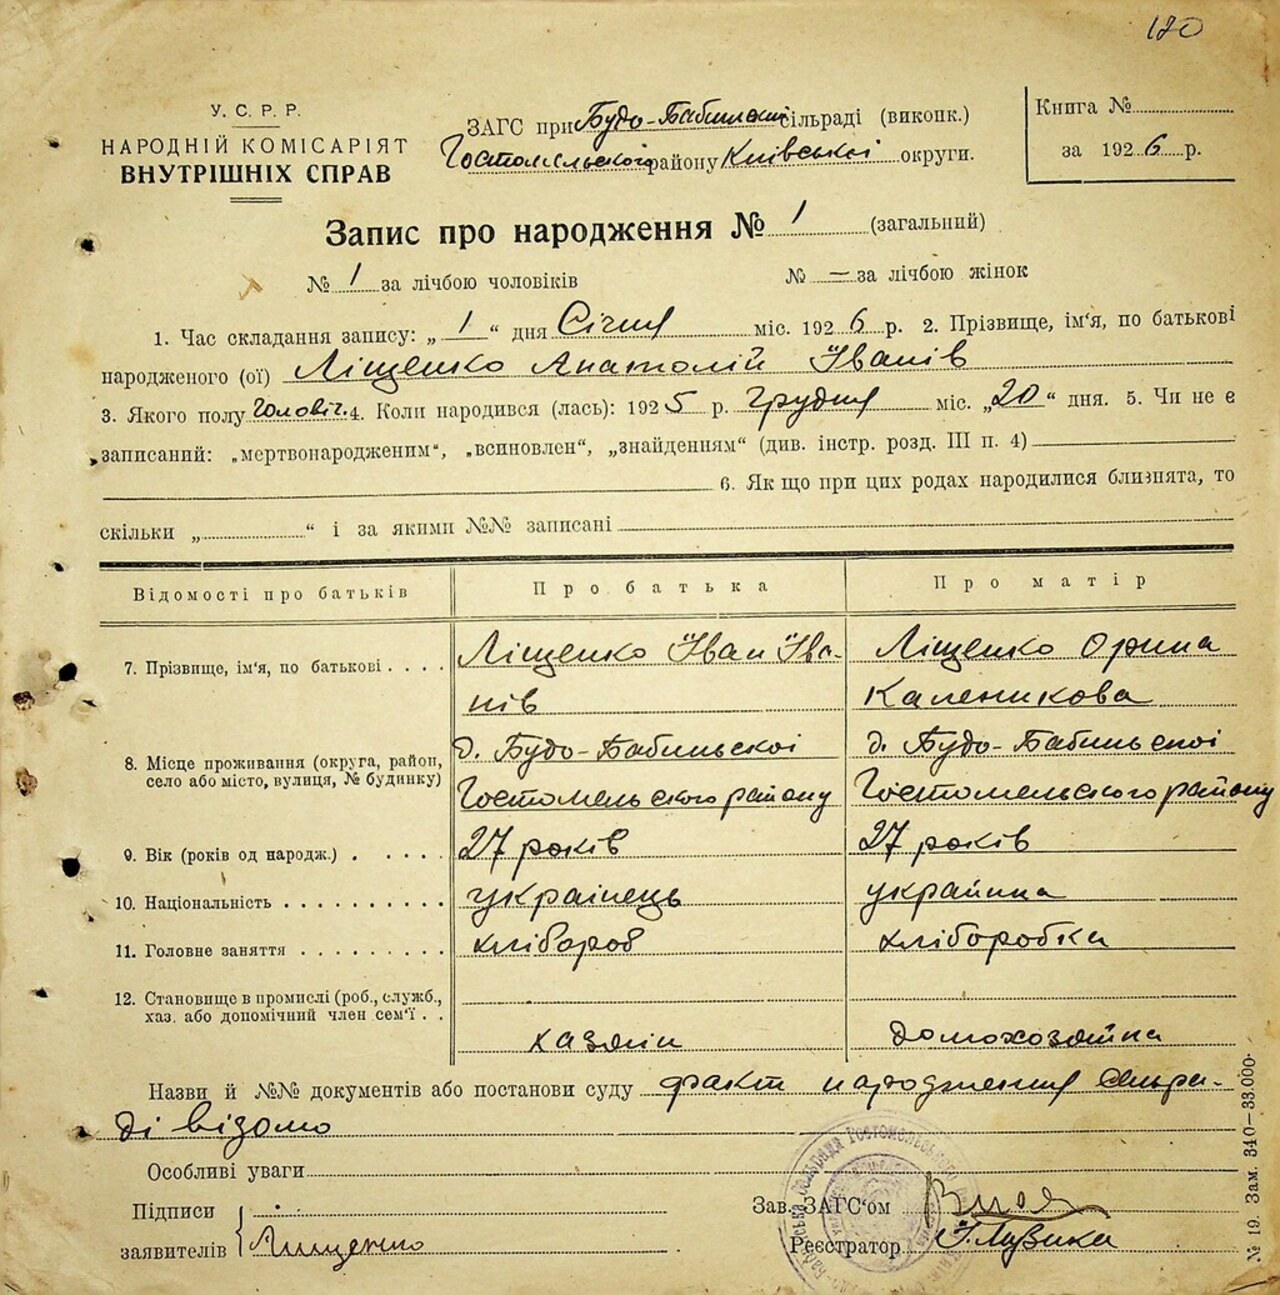 180
У. С. Р. Р.
НАРОДНІЙ КОМІСАРІЯТ
ВНУТРІШНІХ СПРАВ
ЗАГС при Будо-Бабинській сільраді (виконк.)
Гостомельского району Київської округи.
Книга №
за 1926 р.
Запис про народження № 1 (загальний)
№ 1 за лічбою чоловіків № = за лічбою жінок
1. Час складання запису: „ 1 “ дня Січня міс. 1926 р. 2. Прізвище, ім'я, по батькові
народженого (ої) Ліщенко Анатолій Їванів
3. Якого полу Чоловіч. 4. Коли народився (лась): 1925 р. Грудня міс. „20“ дня. 5. Чи не є
записаний: „мертвонародженим“, „всиновлен“, „знайденням“ (див. інстр. розд. III п. 4)
6. Як що при цих родах народилися близнята, то
скільки „ “ і за якими №№ записані
Відомості про батьків Про батька Про матір
7. Прізвище, ім'я, по батькові . . . . Ліщенко Їван Їва- Ліщенко Орина
нів Каленикова
д. Будо-Бабиньскої д. Будо-Бабиньскої
8. Місце проживання (округа, район,
село або місто, вулиця, № будинку)
Гостомельского району Гостомельского району
9. Вік (років од народж.) . . . . . 27 років 27 років
10. Національність . . . . . . . . . . українець украйнка
11. Головне заняття . . . . . . . . . хлібороб хліборобка
12. Становище в промислі (роб., служб.,
хаз. або допомічний член сем'ї . .
хазяін домохозяйка
Назви й №№ документів або постанови суду факт народження сільра-
ді відомо
Особливі уваги
Підписи
Зав. ЗАГС'ом
заявителів Лищенко
Реєстратор Ї. Музика
№ 19. Зам. 340—33.000.